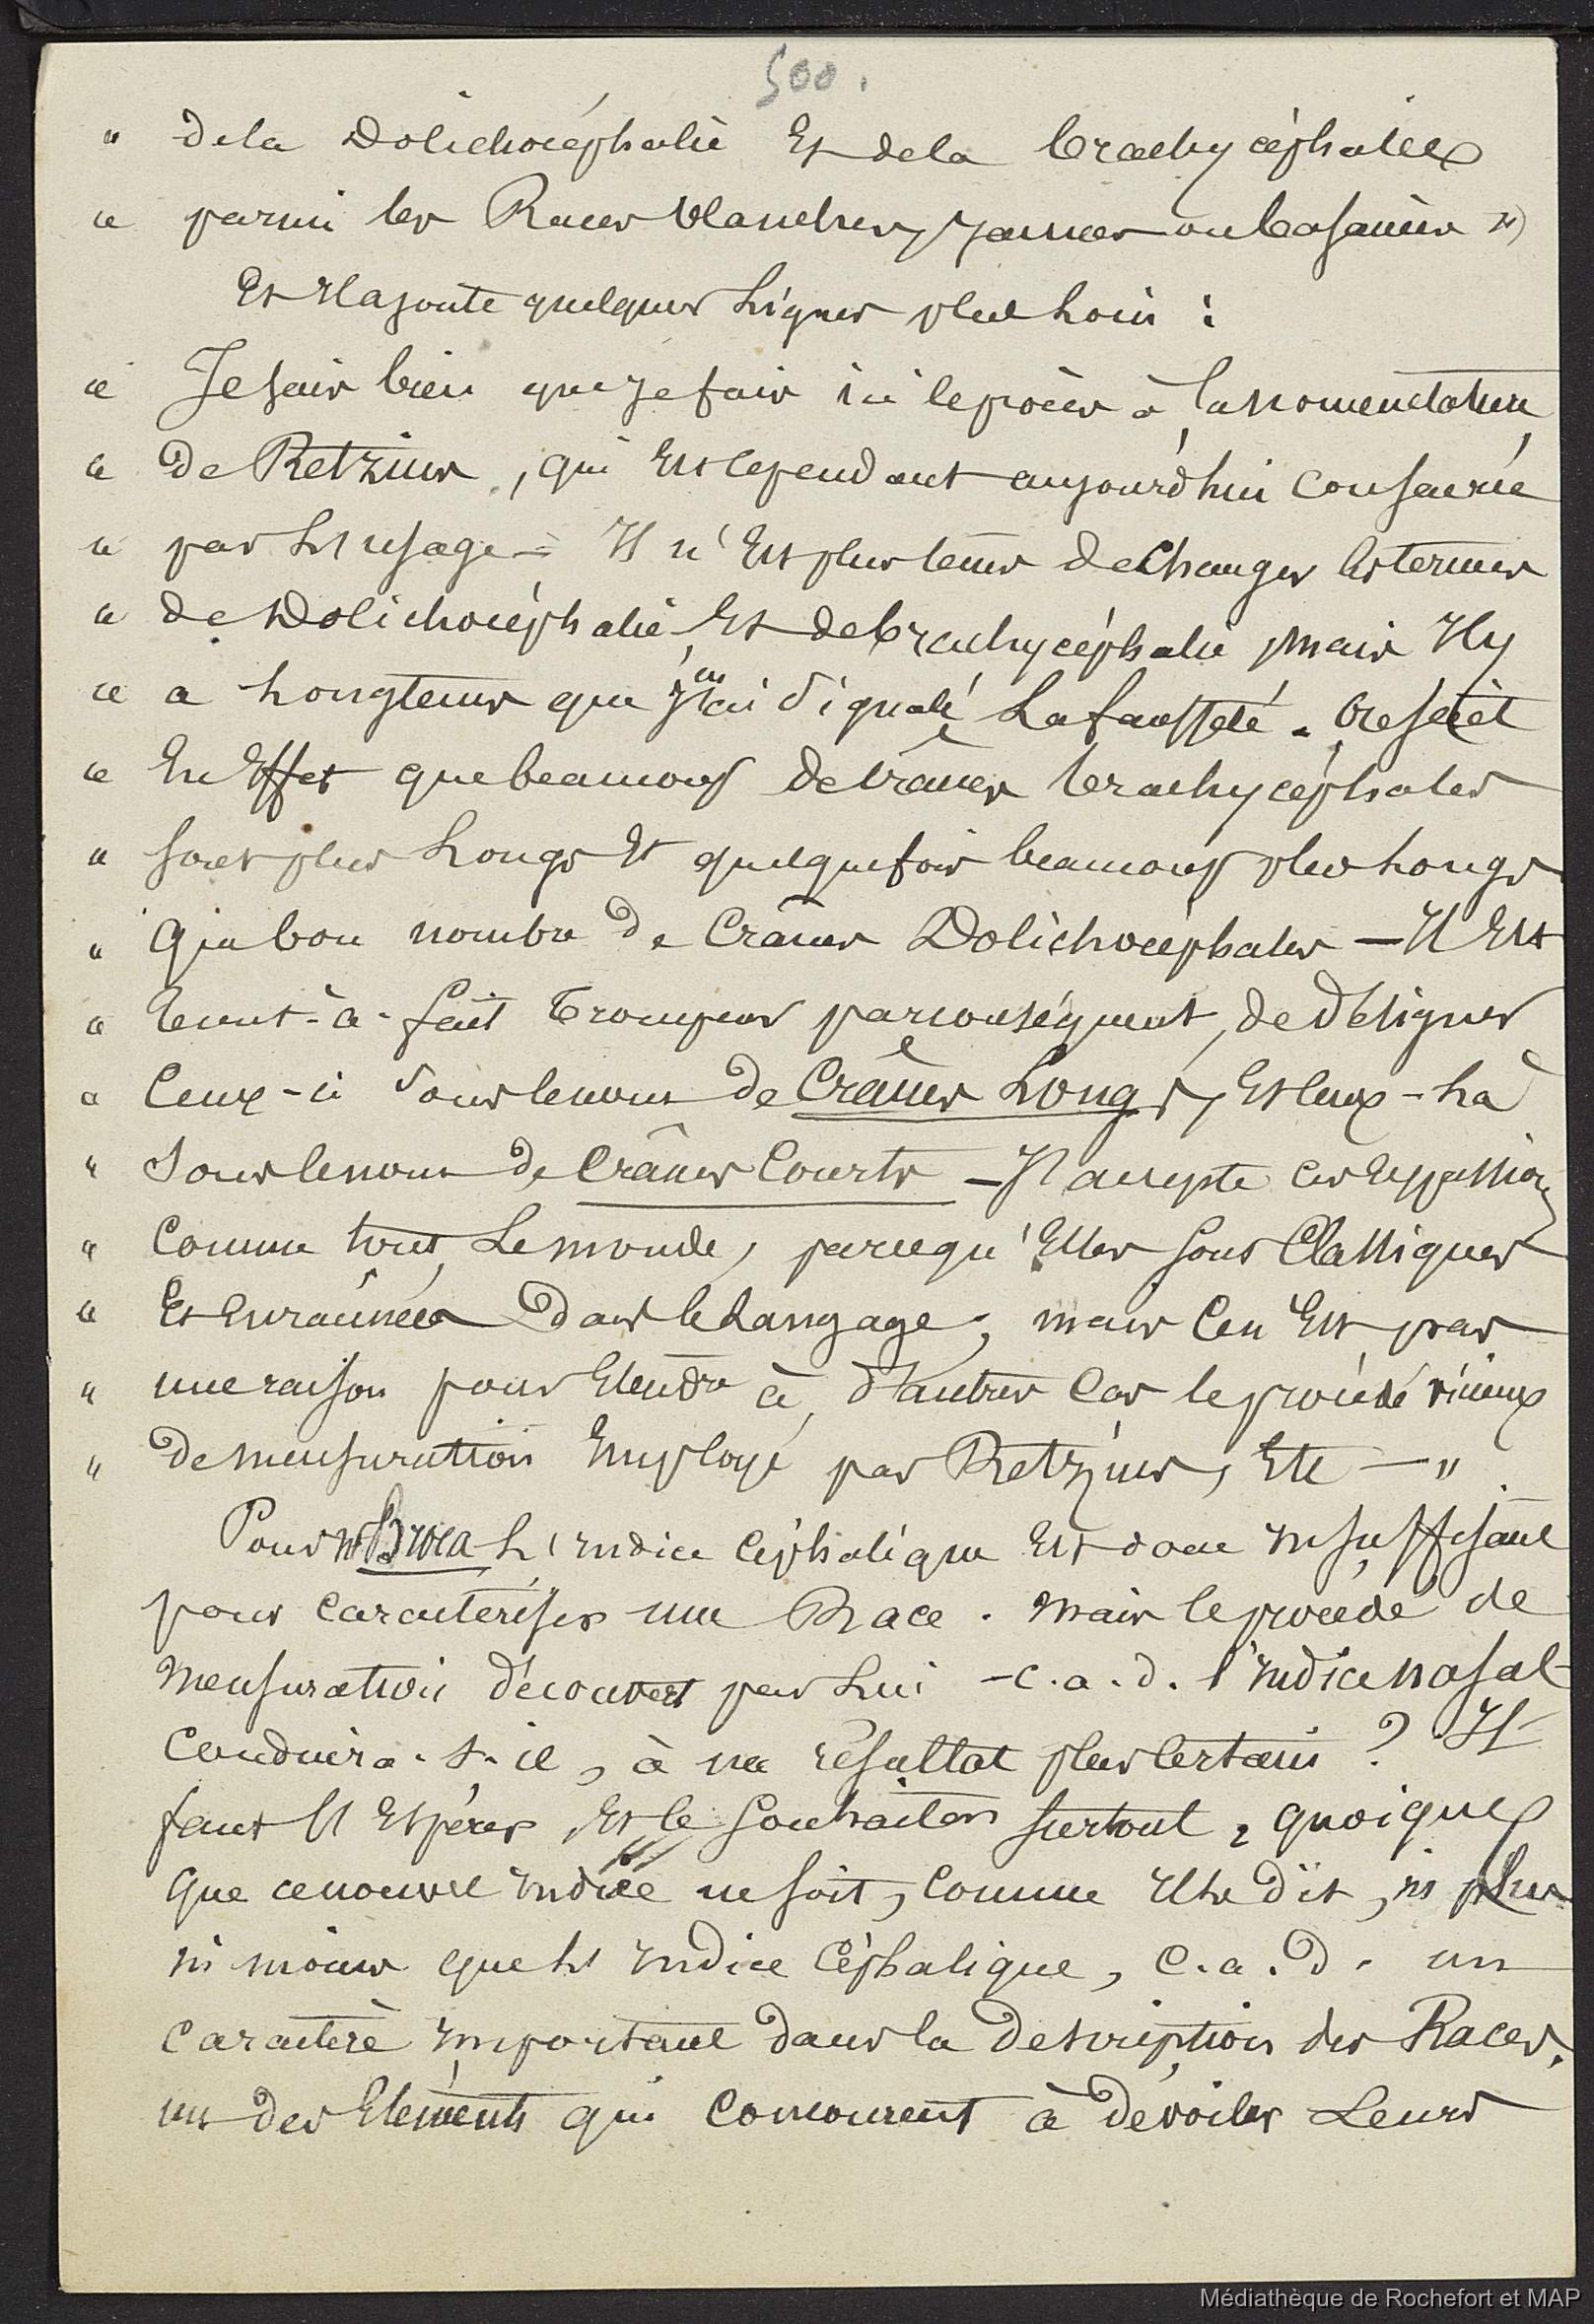 500.
" de la Dolichocéphalie Et de la brachycéphalie
" parmi les Races blanches, jaunes ou basanées ")
Et Il ajoute quelques Lignes plus Loin :
" Je sais bien que je fais ici le procès à la nomenclature
" de Retzius, qui Est cependant aujourd'hui Consacrée
" par L'usage = Il n'Est plus tems de Changer les termes
" de Dolichocéphalie Et de brachycéphalie, mais Il y
" a Longtems que j'en ai signalé La fausseté. Ce serait
" En Effet que beaucoup de crânes brachycéphales
" sont plus Longs Et quelquefois beaucoup plus Longs
" qu'un bon nombre de Crânes Dolichocéphales — Il Est
" tout-à-fait trompeur par conséquent, de désigner
" Ceux-ci sous le nom de Crânes Longs, Et ceux-Là
" Sous le nom de Crânes Courts — J'accepte ces Expressions
" Comme tout Le monde, parcequ'Elles sont Classiques
" Et Enracinées Dans le Langage ; mais Ce n'Est pas
" une raison pour Etendre à d'autres Cas le procédé vicieux
" de mensuration Employé par Retzius, Etc — "
Pour Mr Broca L'Indice Céphalique Est donc Insuffisant
pour Caractériser une Race. mais le procédé de
mensuration découvert par Lui - c.a.d. l'Indice nasal
Conduira-t-il, à un résultat plus Certain ? Il
faut L'Espérer, Et le Souhaiter surtout, quoique
que ce nouvel Indice ne soit, Comme Il Le dit, ni plus
ni moins que L'Indice Céphalique, C.a.d. un
Caractère Important dans la description des Races,
un des Eléments qui Concourent à dévoiler Leurs
Médiathèque de Rochefort et MAP